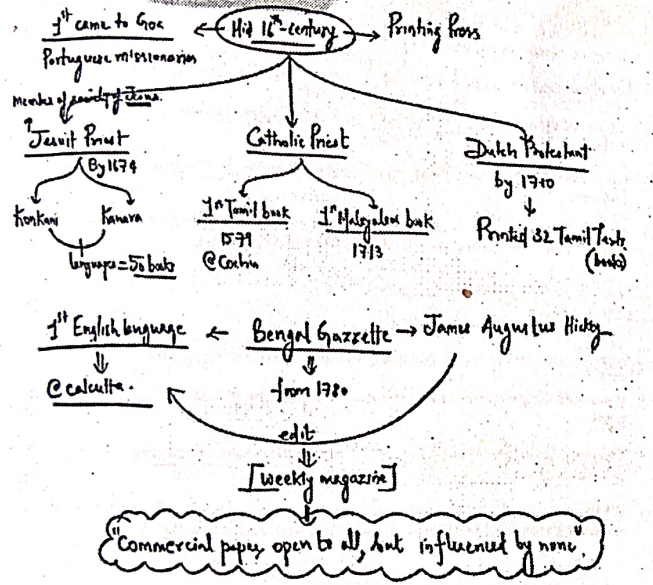 1st came to Goa ← Mid 16th-century → Printing Press
Portuguese missionaries
Member of society of Jesus.
Jesuit Priest
By 1674
Konkani Kanara
languages = 50 books
Catholic Priest
1st Tamil book
1579
@ Cochin
1st Malayalam book
1713
Dutch Protestant
by 1710
Printed 32 Tamil Texts
(books)
1st English language ← Bengal Gazzette → James Augustus Hickey
@ calcutta.
from 1780
edit
[weekly magazine]
"Commercial paper, open to all, but influenced by none".